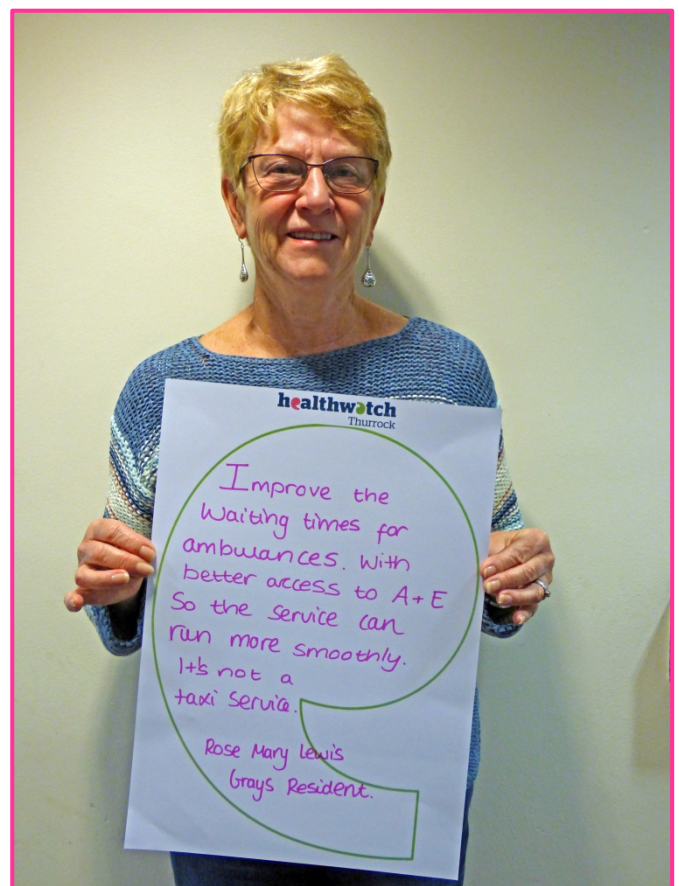 healthwatch
Thurrock
Improve the
Waiting times for
ambulances. With
better access to A+E
So the service can
run more smoothly.
It's not a
taxi service.
Rose Mary Lewis
Grays Resident.